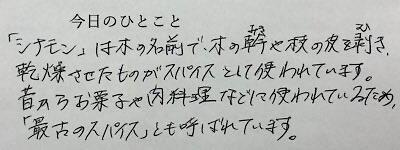 今日のひとこと
「シナモン」は木の名前で、木の幹や枝の皮を剥き、
乾燥させたものがスパイスとして使われています。
昔からお菓子や肉料理などに使われているため、
「最古のスパイス」とも呼ばれています。